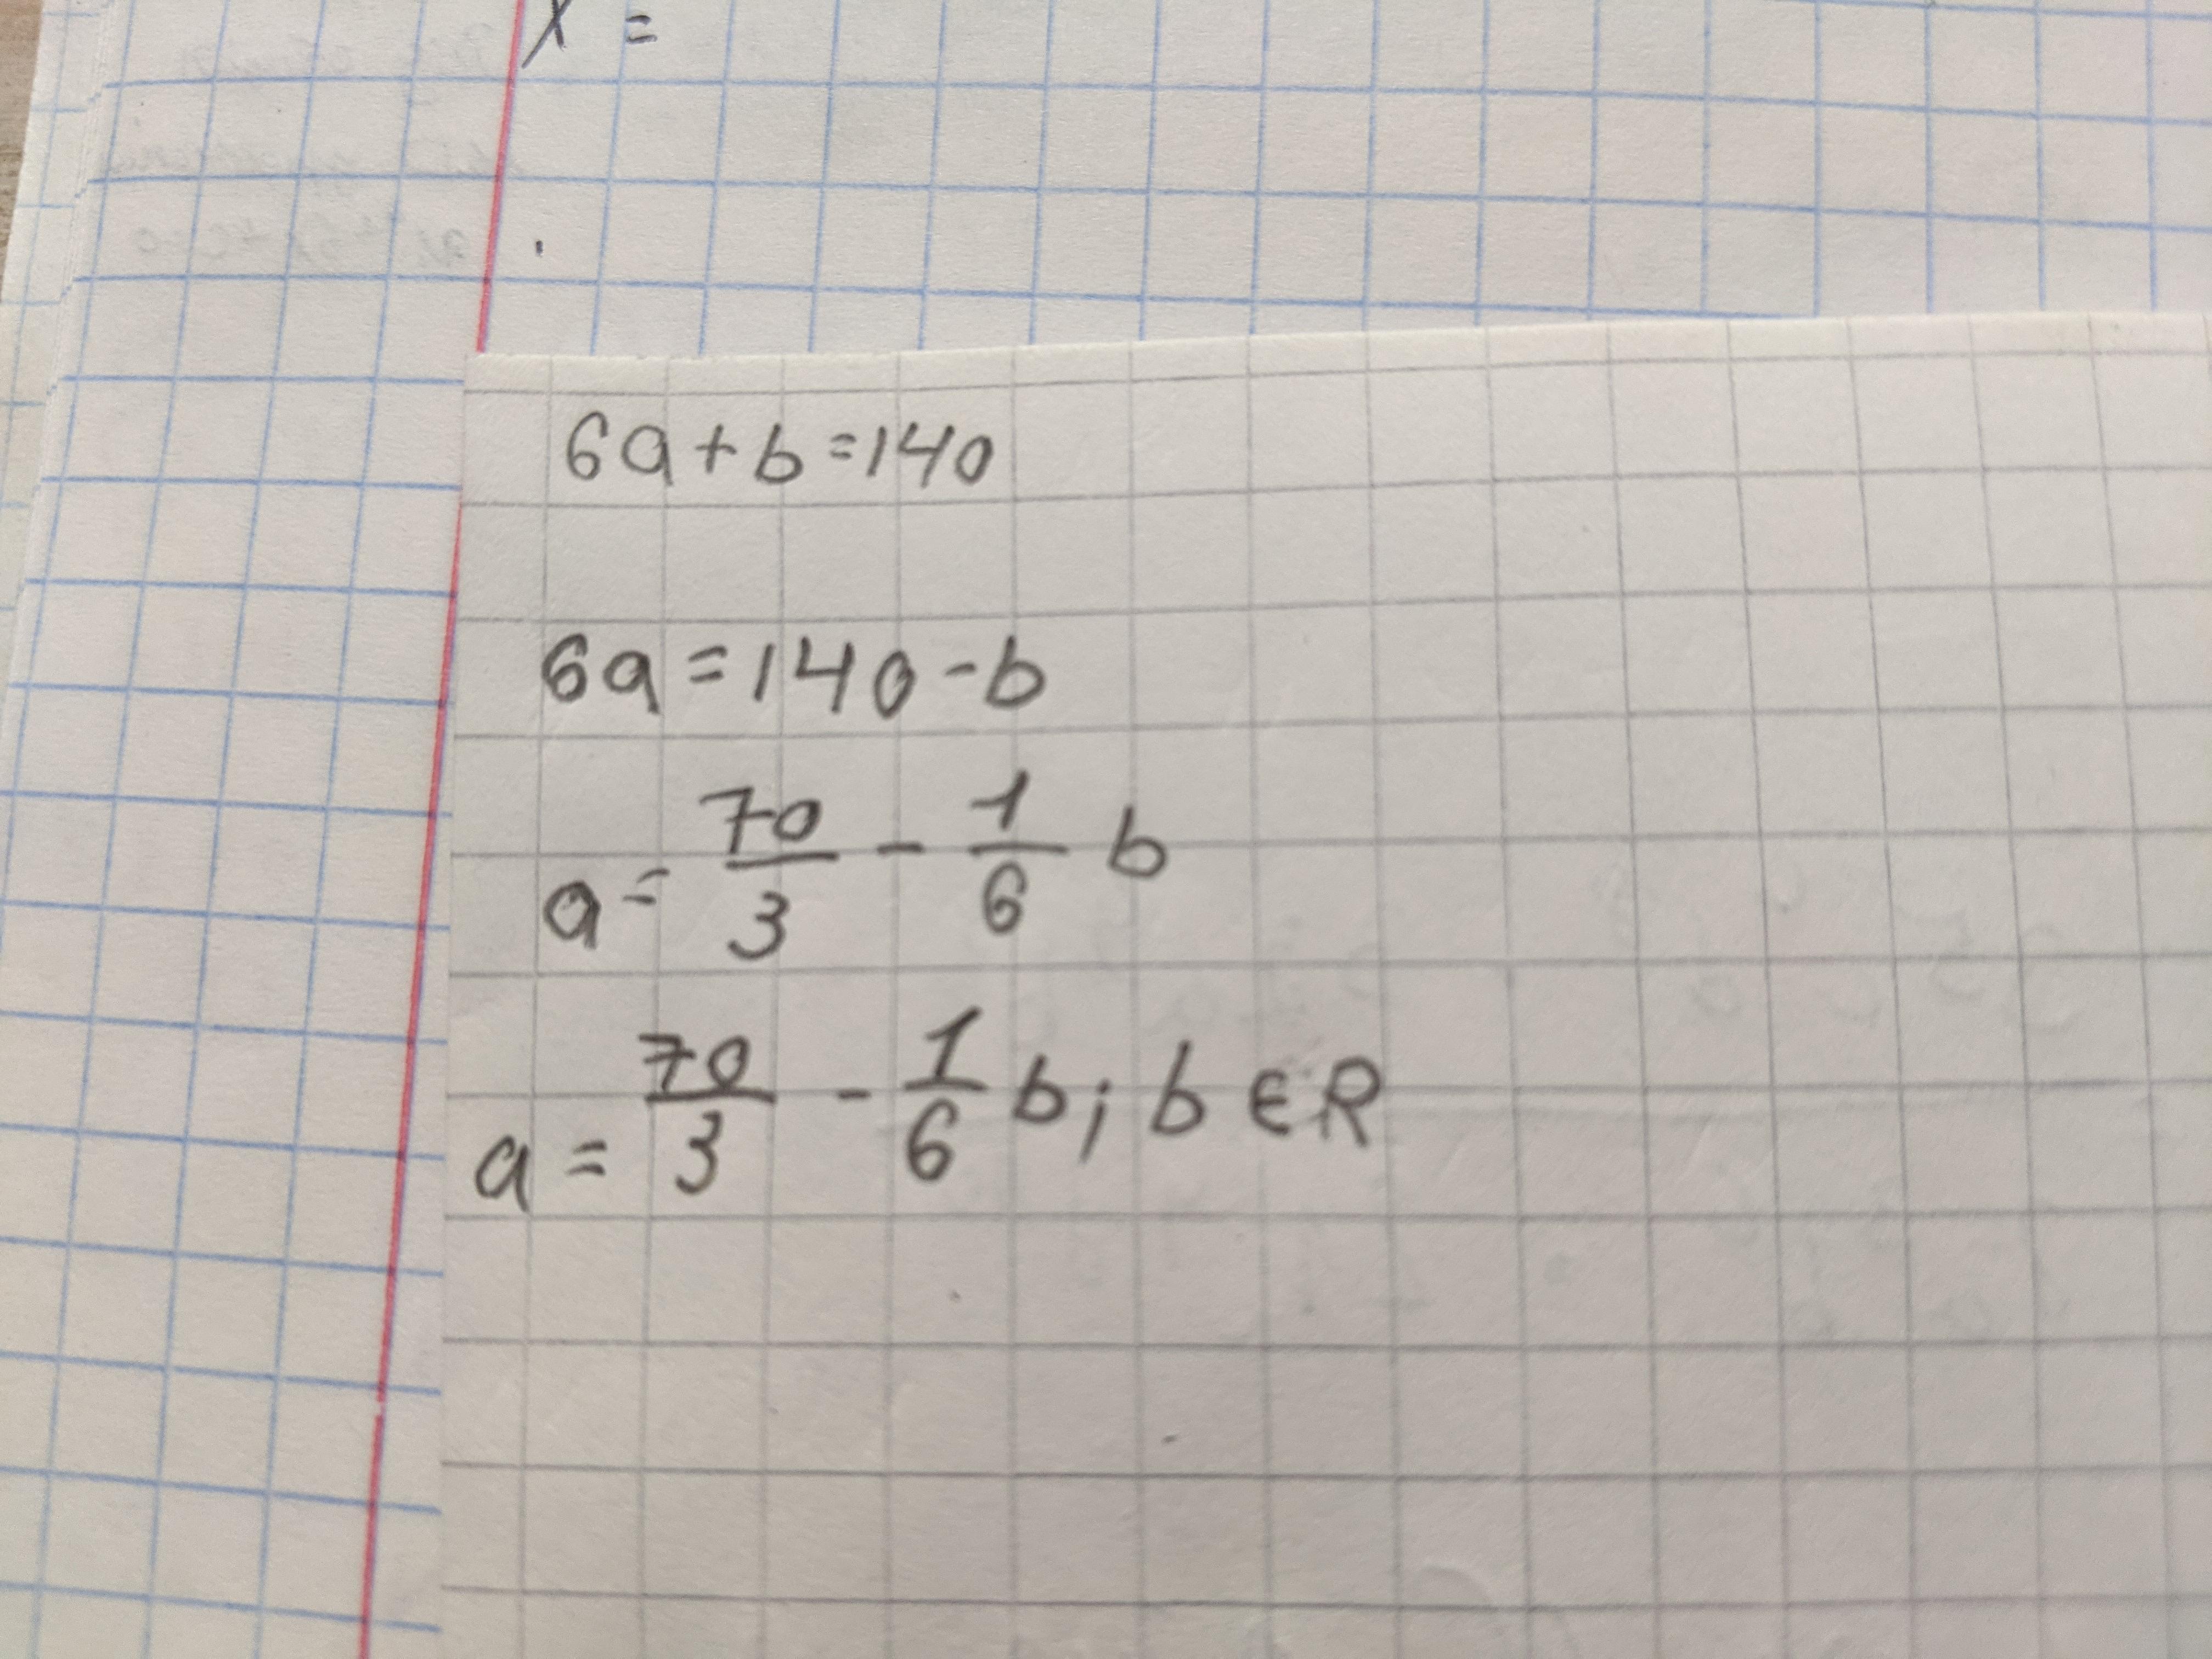 x =
6a+b=140
6a=140-b
a= 70/3 - 1/6 b
a = 70/3 - 1/6 b; b ∈ R